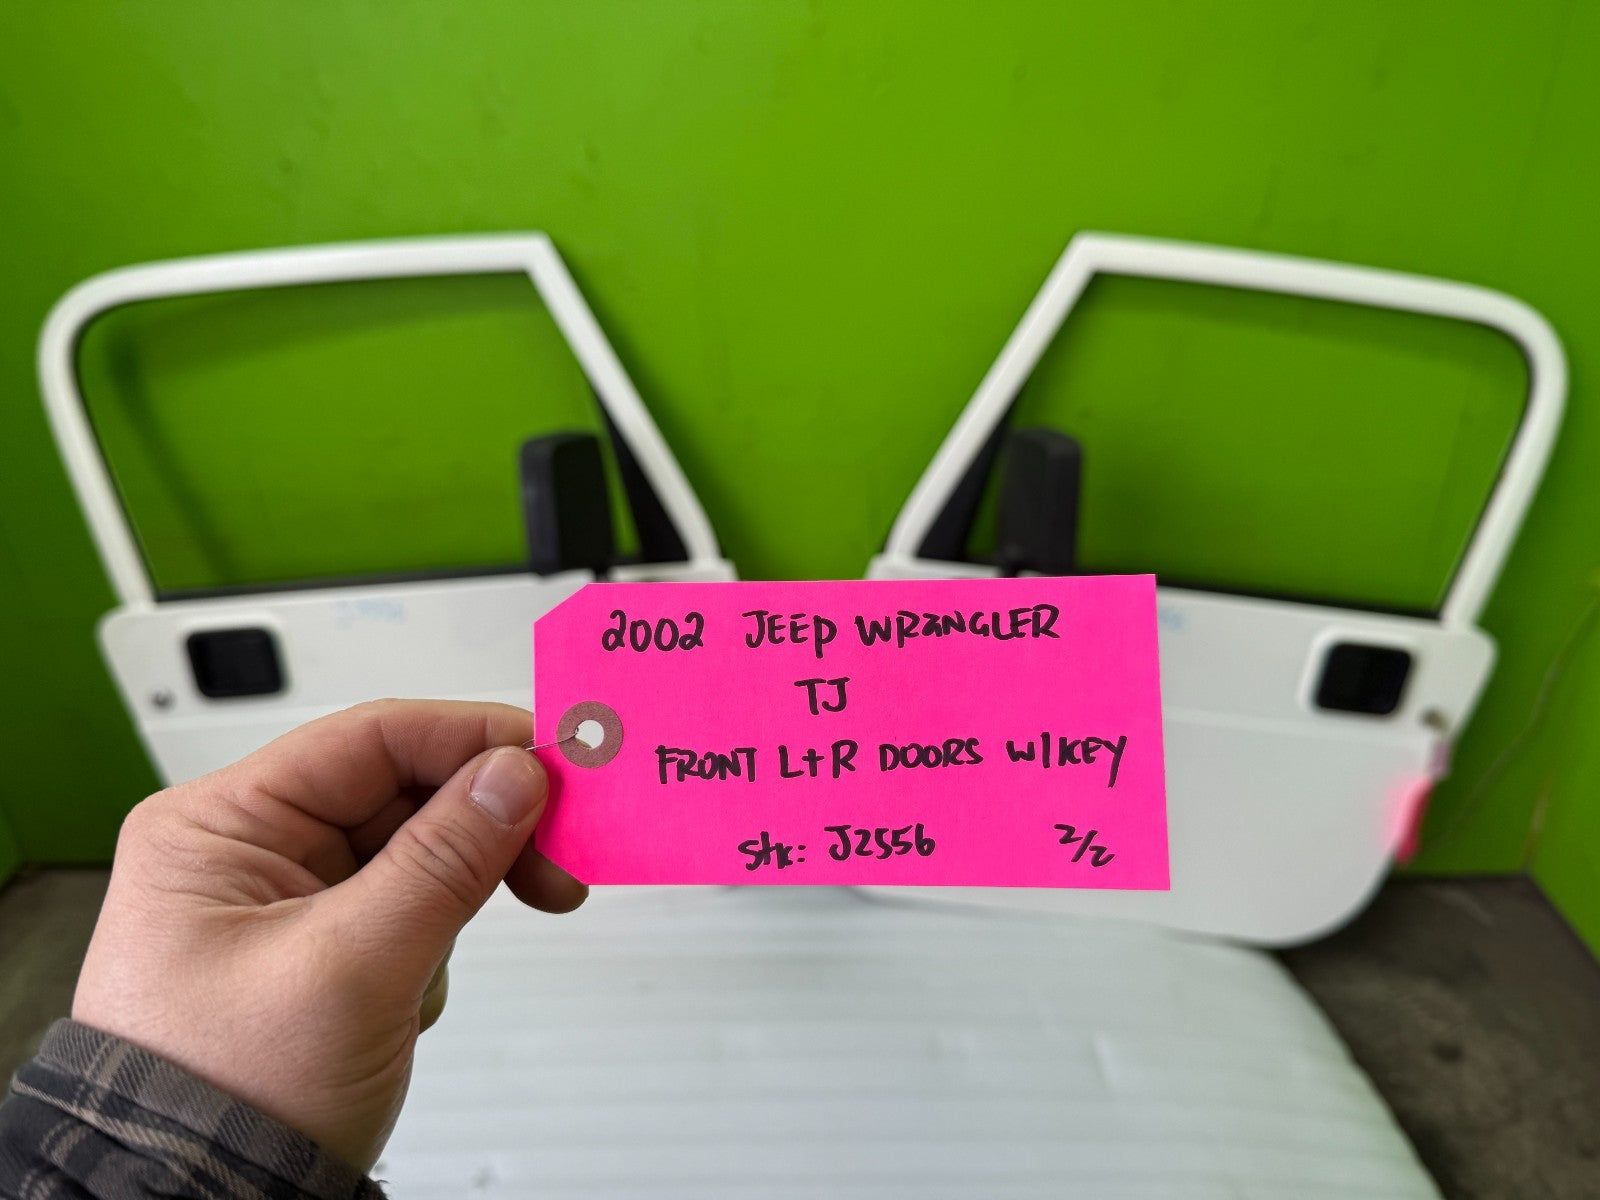 2002 JEEP WRANGLER
TJ
FRONT L+R DOORS W/KEY
Stk: J2556 2/2